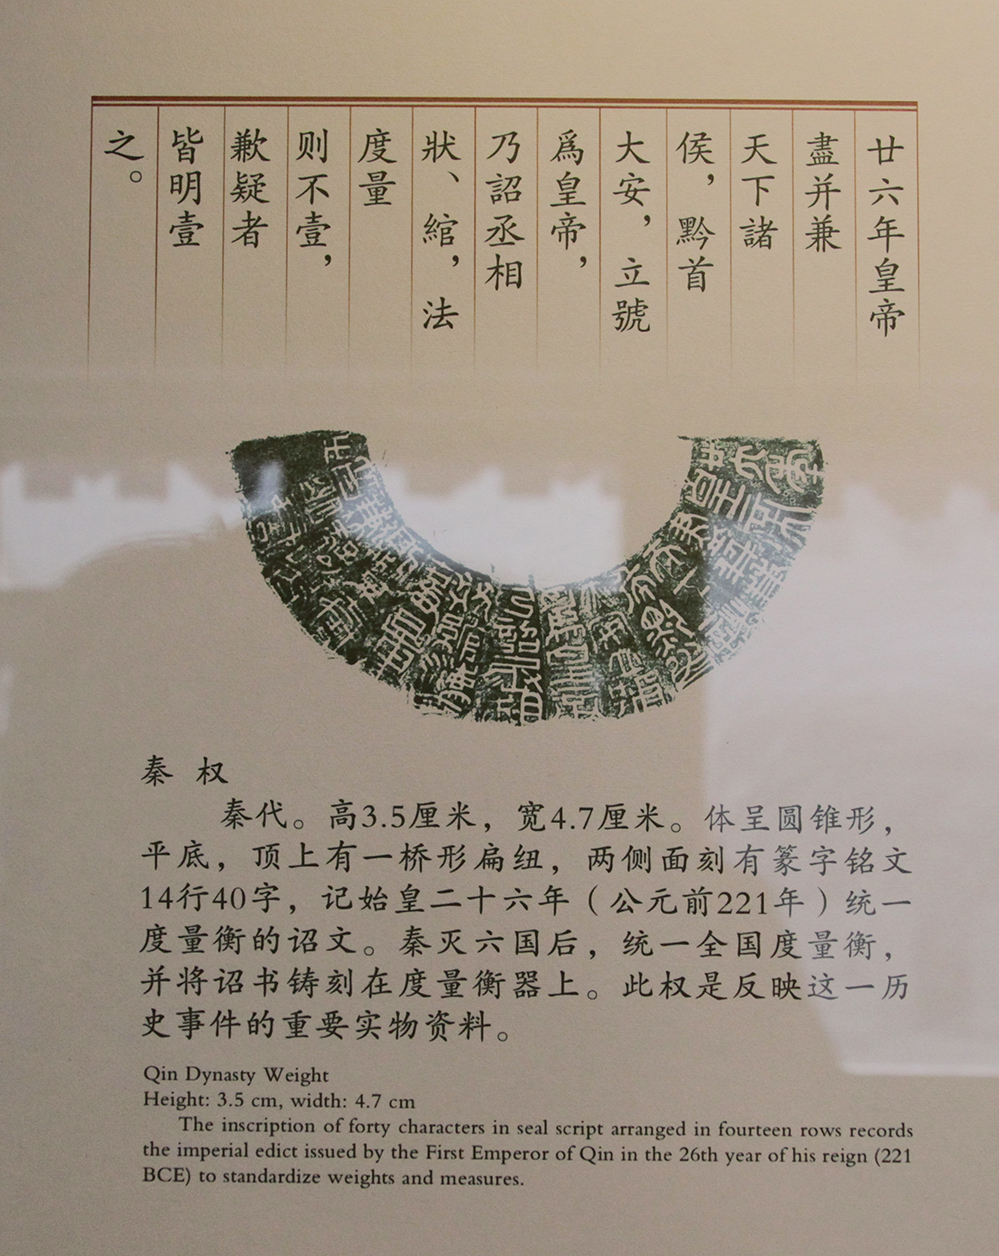 廿六年皇帝
盡并兼
天下諸
侯，黔首
大安，立號
爲皇帝，
乃詔丞相
狀、綰，法
度量
则不壹，
歉疑者
皆明壹
之。
秦 权
秦代。高3.5厘米，宽4.7厘米。体呈圆锥形，
平底，顶上有一桥形扁纽，两侧面刻有篆字铭文
14行40字，记始皇二十六年（公元前221年）统一
度量衡的诏文。秦灭六国后，统一全国度量衡，
并将诏书铸刻在度量衡器上。此权是反映这一历
史事件的重要实物资料。
Qin Dynasty Weight
Height: 3.5 cm, width: 4.7 cm
The inscription of forty characters in seal script arranged in fourteen rows records
the imperial edict issued by the First Emperor of Qin in the 26th year of his reign (221
BCE) to standardize weights and measures.